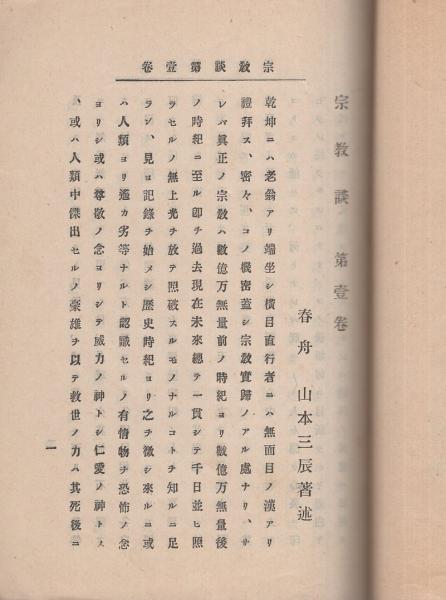 宗教談第壹卷
宗教談第壹卷
春舟 山本三辰著述
乾坤ニハ老翁アリ端坐シ橫目直行者ニハ無面目ノ漢アリ
禮拜ス、密々、コノ機密蓋シ宗教實歸ノアル處ナリ、サ
レバ眞正ノ宗教ハ數億万無量前ノ時紀ヨリ數億万無量後
ノ時紀ニ至ル卽チ過去現在未來總テ一貫シテ千日並ヒ照
ラセルノ無上光ヲ放テ照破スルモノナルコトヲ知ルニ足
ラン、見ヨ記錄ヲ始メシ歷史時紀ヨリ之ヲ徵シ來ルニ或
ハ人類ヨリ遙カ劣等ナルト認識セルノ有情物ヲ恐怖ノ念
ヨリシ或ハ尊敬ノ念ヨリシテ威力ノ神トシ仁愛ノ神トス
、或ハ人類中傑出セルノ豪雄ヲ以テ救世ノ力ハ其死後ニ
一